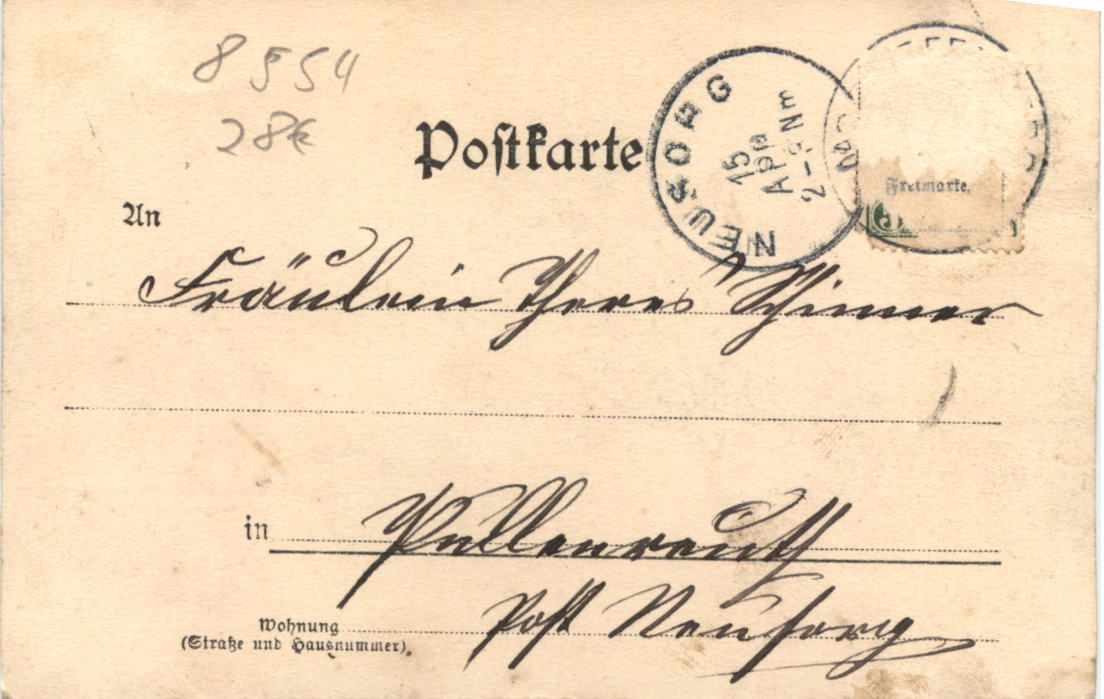 8554
28€
Postkarte
NEUSORG
15
APR
2-3Nm
Freimarke.
5
An
Fräulein Theres Schinner
in Pullenreuth
Post Neusorg
Wohnung
(Straße und Hausnummer)